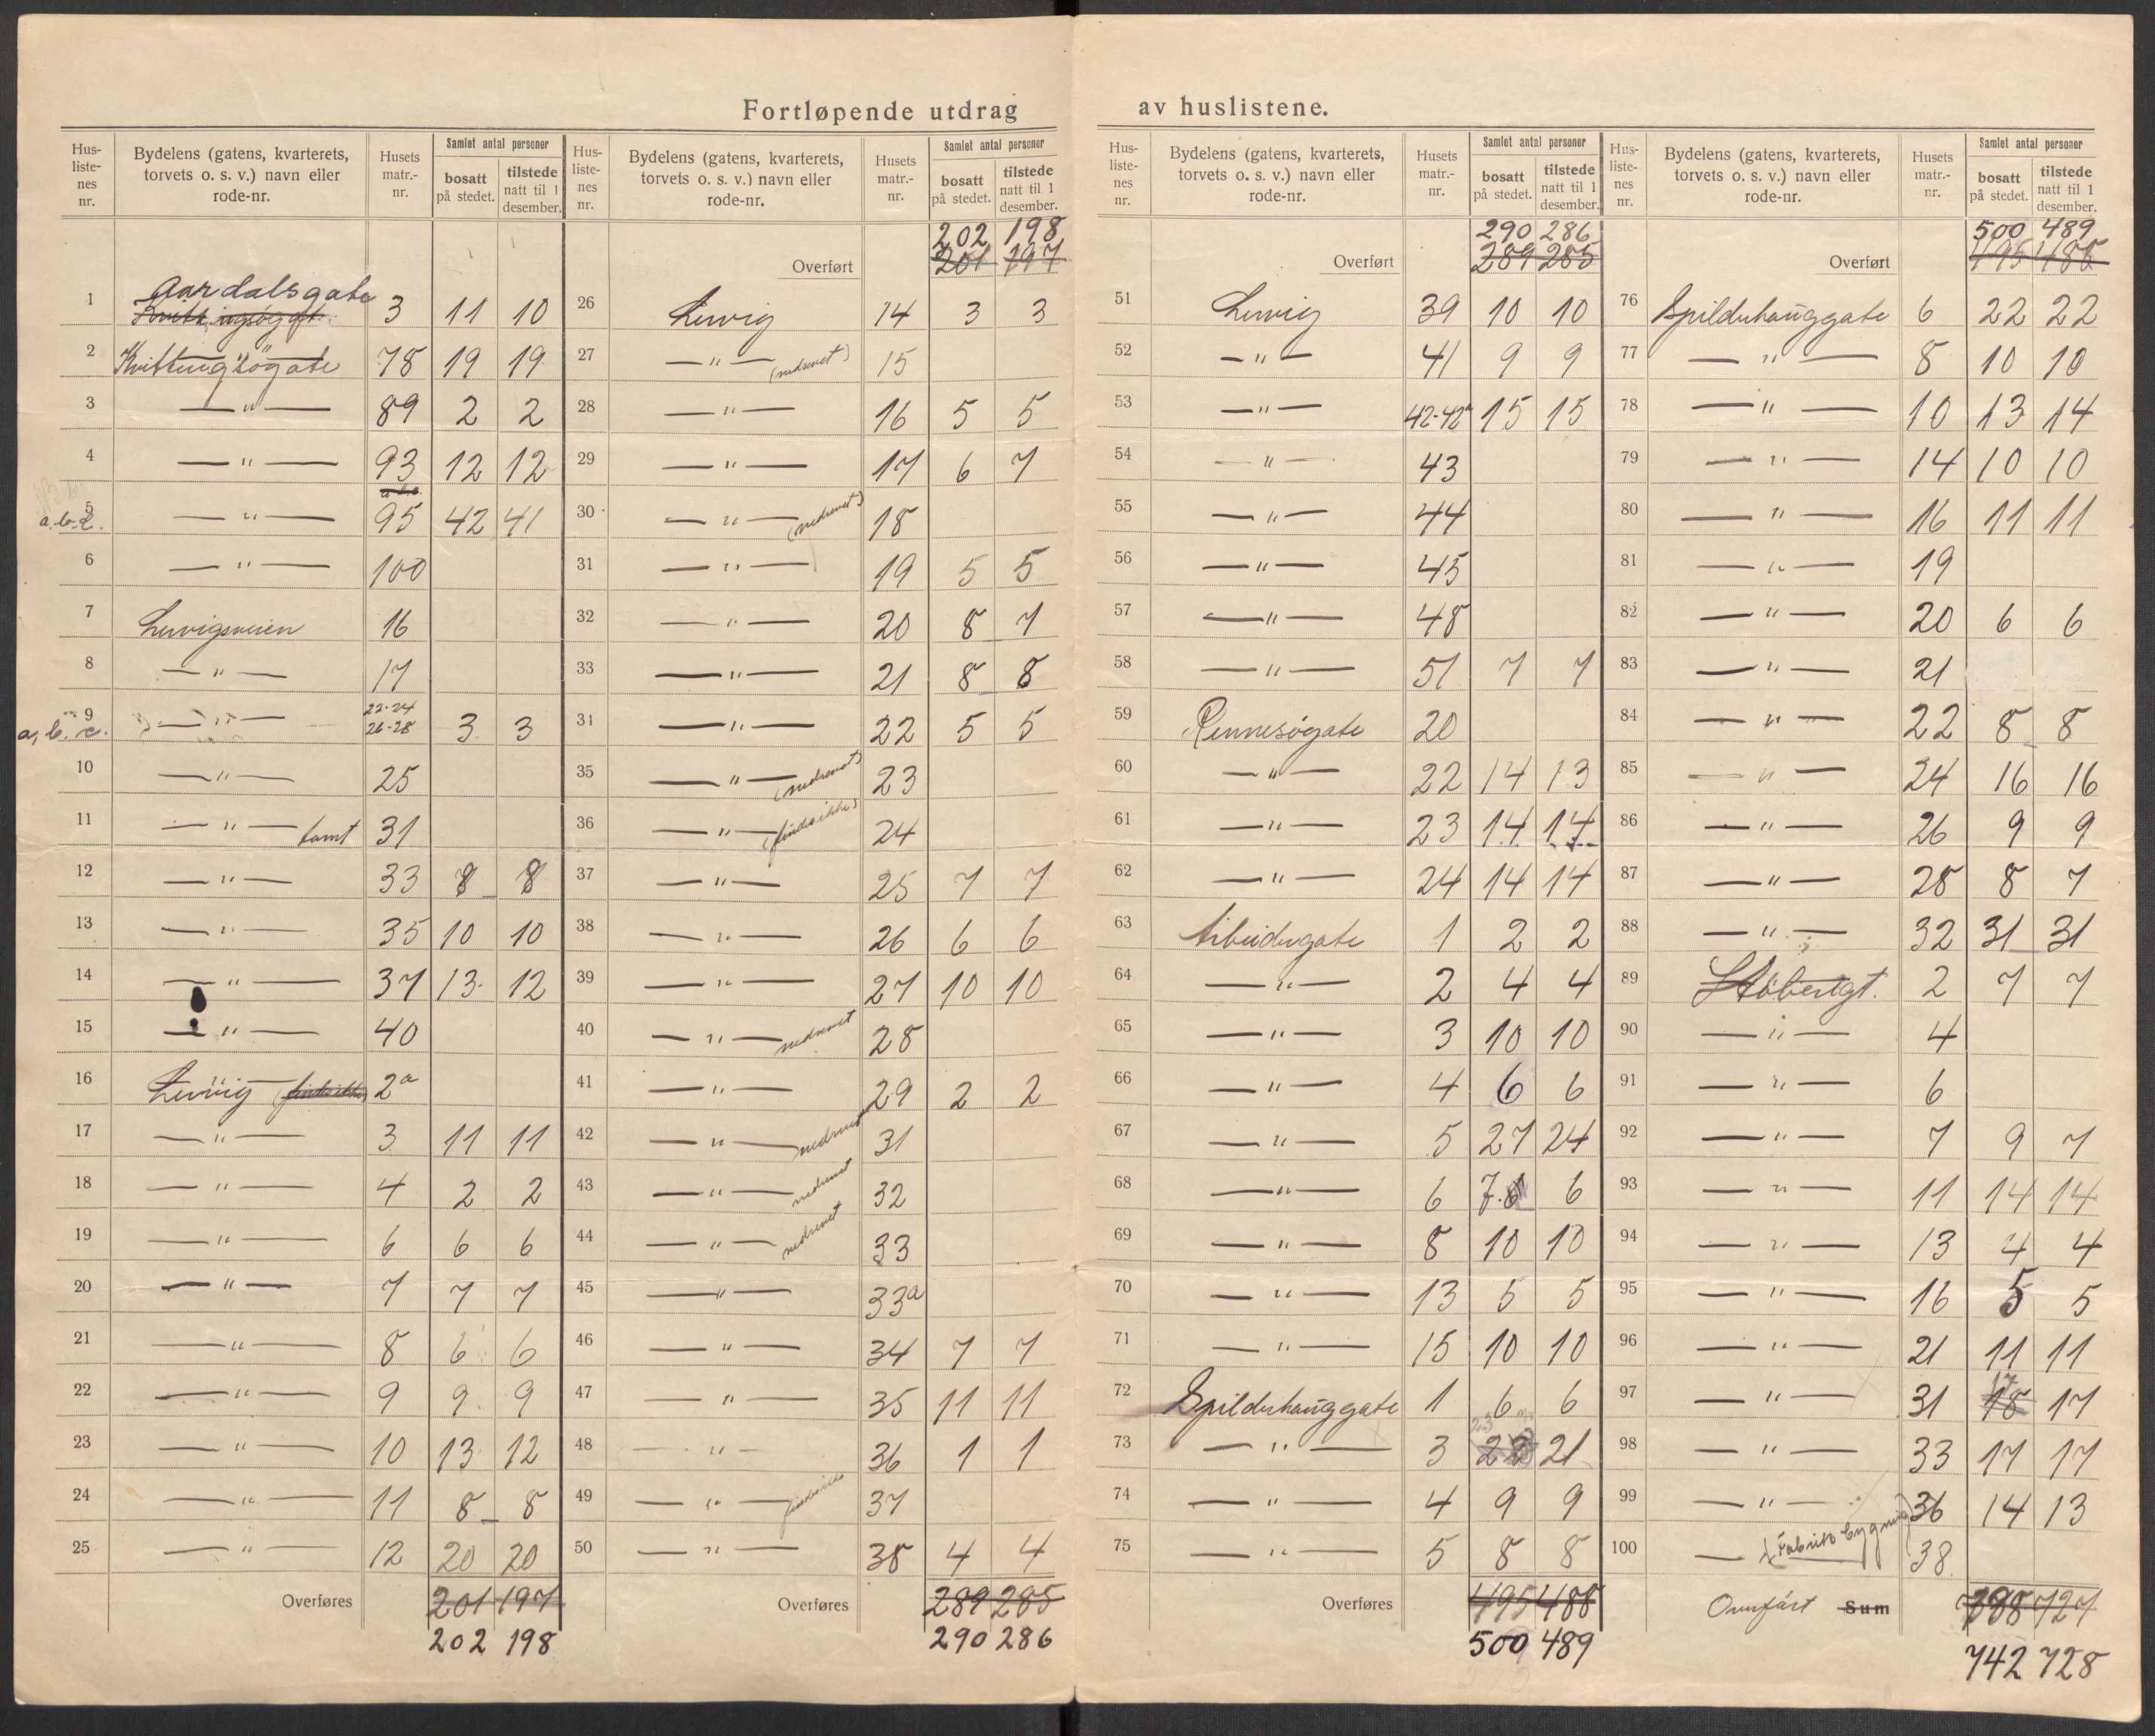 Fortløpende utdrag av huslistene.
Hus-listenes nr. | Bydelens (gatens, kvarterets, torvets o. s. v.) navn eller rode-nr. | Husets matr.-nr. | Samlet antal personer bosatt på stedet. | tilstede natt til 1 desember.
1 Aardalsgate 3 11 10
2 Kvitsingsøgate 78 19 19
3 —"— 89 2 2
4 —"— 93 12 12
5 a.b.c. —"— 95 42 41
6 —"— 100
7 Lervigsveien 16
8 —"— 17
9 a, b. c. —"— 22-24 26-28 3 3
10 —"— 25
11 —"— tomt 31
12 —"— 33 8 8
13 —"— 35 10 10
14 —"— 37 13 12
15 —"— 40
16 Lervig (findes ikke) 2a
17 —"— 3 11 11
18 —"— 4 2 2
19 —"— 6 6 6
20 —"— 7 7 7
21 —"— 8 6 6
22 —"— 9 9 9
23 —"— 10 13 12
24 —"— 11 8 8
25 —"— 12 20 20
Overføres 201 197
202 198
Hus-listenes nr. | Bydelens (gatens, kvarterets, torvets o. s. v.) navn eller rode-nr. | Husets matr.-nr. | Samlet antal personer bosatt på stedet. | tilstede natt til 1 desember.
202 198
Overført 201 197
26 Lervig 14 3 3
27 —"— (nedrevet) 15
28 —"— 16 5 5
29 —"— 17 6 7
30 —"— (nedrevet) 18
31 —"— 19 5 5
32 —"— 20 8 7
33 —"— 21 8 8
31 —"— 22 5 5
35 —"— (nedrevet) 23
36 —"— (findes ikke) 24
37 —"— 25 7 7
38 —"— 26 6 6
39 —"— 27 10 10
40 —"— nedrevet 28
41 —"— 29 2 2
42 —"— nedrevet 31
43 —"— nedrevet 32
44 —"— nedrevet 33
45 —"— 33a
46 —"— 34 7 7
47 —"— 35 11 11
48 —"— 36 1 1
49 —"— findes ikke 37
50 —"— 38 4 4
Overføres 289 285
290 286
Hus-listenes nr. | Bydelens (gatens, kvarterets, torvets o. s. v.) navn eller rode-nr. | Husets matr.-nr. | Samlet antal personer bosatt på stedet. | tilstede natt til 1 desember.
290 286
Overført 289 285
51 Lervig 39 10 10
52 —"— 41 9 9
53 —"— 42-42a 15 15
54 —"— 43
55 —"— 44
56 —"— 45
57 —"— 48
58 —"— 51 7 7
59 Rennesøgate 20
60 —"— 22 14 13
61 —"— 23 14 14
62 —"— 24 14 14
63 Arbeidergate 1 2 2
64 —"— 2 4 4
65 —"— 3 10 10
66 —"— 4 6 6
67 —"— 5 27 24
68 —"— 6 7 6
69 —"— 8 10 10
70 —"— 13 5 5
71 —"— 15 10 10
72 Spilderhauggate 1 6 6
73 —"— 3 23 21
74 —"— 4 9 9
75 —"— 5 8 8
Overføres 495 488
500 489
Hus-listenes nr. | Bydelens (gatens, kvarterets, torvets o. s. v.) navn eller rode-nr. | Husets matr.-nr. | Samlet antal personer bosatt på stedet. | tilstede natt til 1 desember.
500 489
Overført 495 488
76 Spilderhauggate 6 22 22
77 —"— 8 10 10
78 —"— 10 13 14
79 —"— 14 10 10
80 —"— 16 11 11
81 —"— 19
82 —"— 20 6 6
83 —"— 21
84 —"— 22 8 8
85 —"— 24 16 16
86 —"— 26 9 9
87 —"— 28 8 7
88 —"— 32 31 31
89 Støberigt. 2 7 7
90 —"— 4
91 —"— 6
92 —"— 7 9 7
93 —"— 11 14 14
94 —"— 13 4 4
95 —"— 16 5 5
96 —"— 21 11 11
97 —"— 31 17 18 17
98 —"— 33 17 17
99 —"— 36 14 13
100 — (Fabrikbygning) 38
Overført Sum 727
742 728